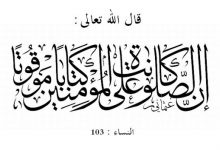 قال الله تعالى :
إن الصلوة كانت على المؤمنين كتابا موقوتا
النساء : 103